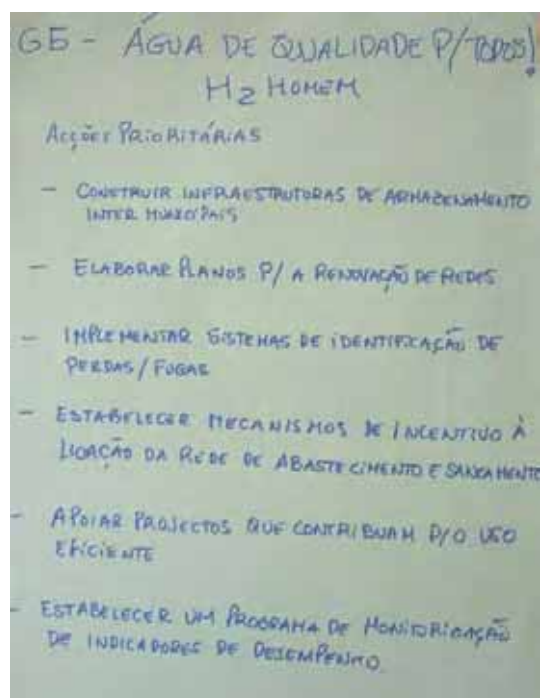 G5 - ÁGUA DE QUALIDADE P/ TODOS!
H2 HOMEM
Acções PRIORITÁRIAS
- CONSTRUIR INFRAESTRUTURAS DE ARMAZENAMENTO
INTER MUNICIPAIS
- ELABORAR PLANOS P/ A RENOVAÇÃO DE REDES
- IMPLEMENTAR SISTEMAS DE IDENTIFICAÇÃO DE
PERDAS / FUGAS
- ESTABELECER MECANISMOS DE INCENTIVO À
LIGAÇÃO DA REDE DE ABASTECIMENTO E SANEAMENTO
- APOIAR PROJECTOS QUE CONTRIBUAM P/ O USO
EFICIENTE
- ESTABELECER UM PROGRAMA DE MONITORIZAÇÃO
DE INDICADORES DE DESEMPENHO